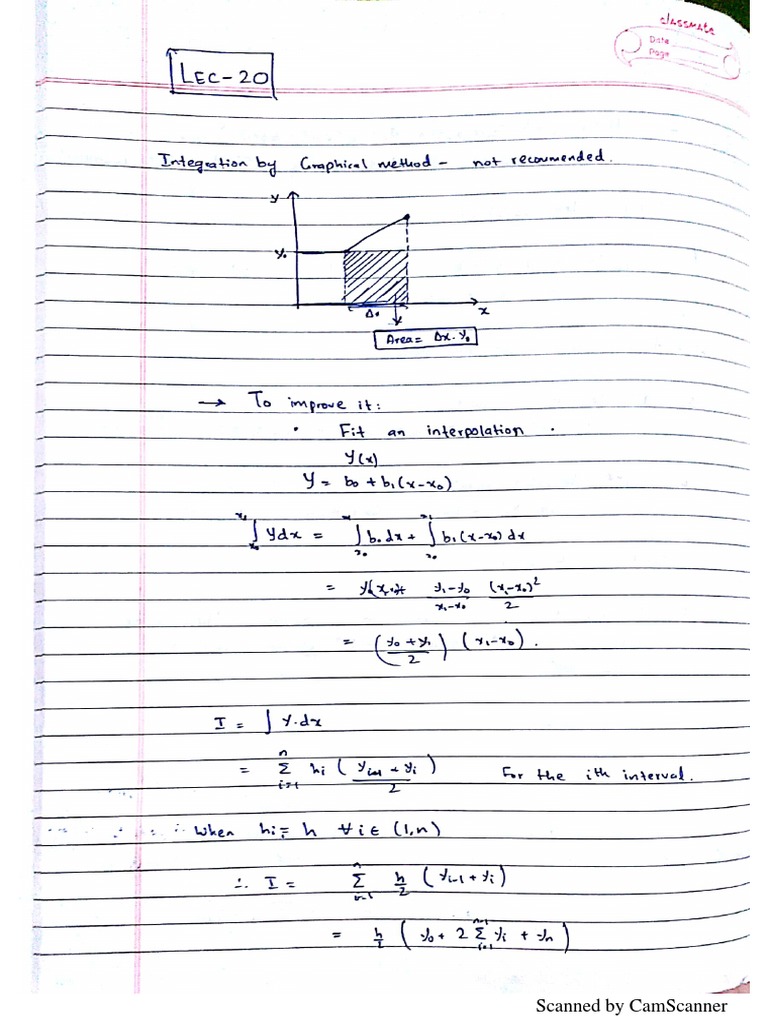 classmate
Date
Page
LEC-20
Integration by Graphical method - not recommended.
y
y₀
x
Area = Δx·y₀
→ To improve it:
• Fit an interpolation.
y(x)
y = b₀ + b₁(x-x₀)
∫ y dx = ∫ b₀ dx + ∫ b₁(x-x₀) dx
= (y₁-y₀)/(x₁-x₀) (x₁-x₀)²/2
= ((y₀+y₁)/2) (x₁-x₀).
I = ∫ y·dx
= Σ_{i=1}^{n} hᵢ ((yᵢ₋₁ + yᵢ)/2) For the ith interval.
When hᵢ = h ∀ i ∈ (1,n)
∴ I = Σ_{i=1}^{n} h/2 (yᵢ₋₁ + yᵢ)
= h/2 (y₀ + 2 Σ_{i=1}^{n-1} yᵢ + yₙ)
Scanned by CamScanner